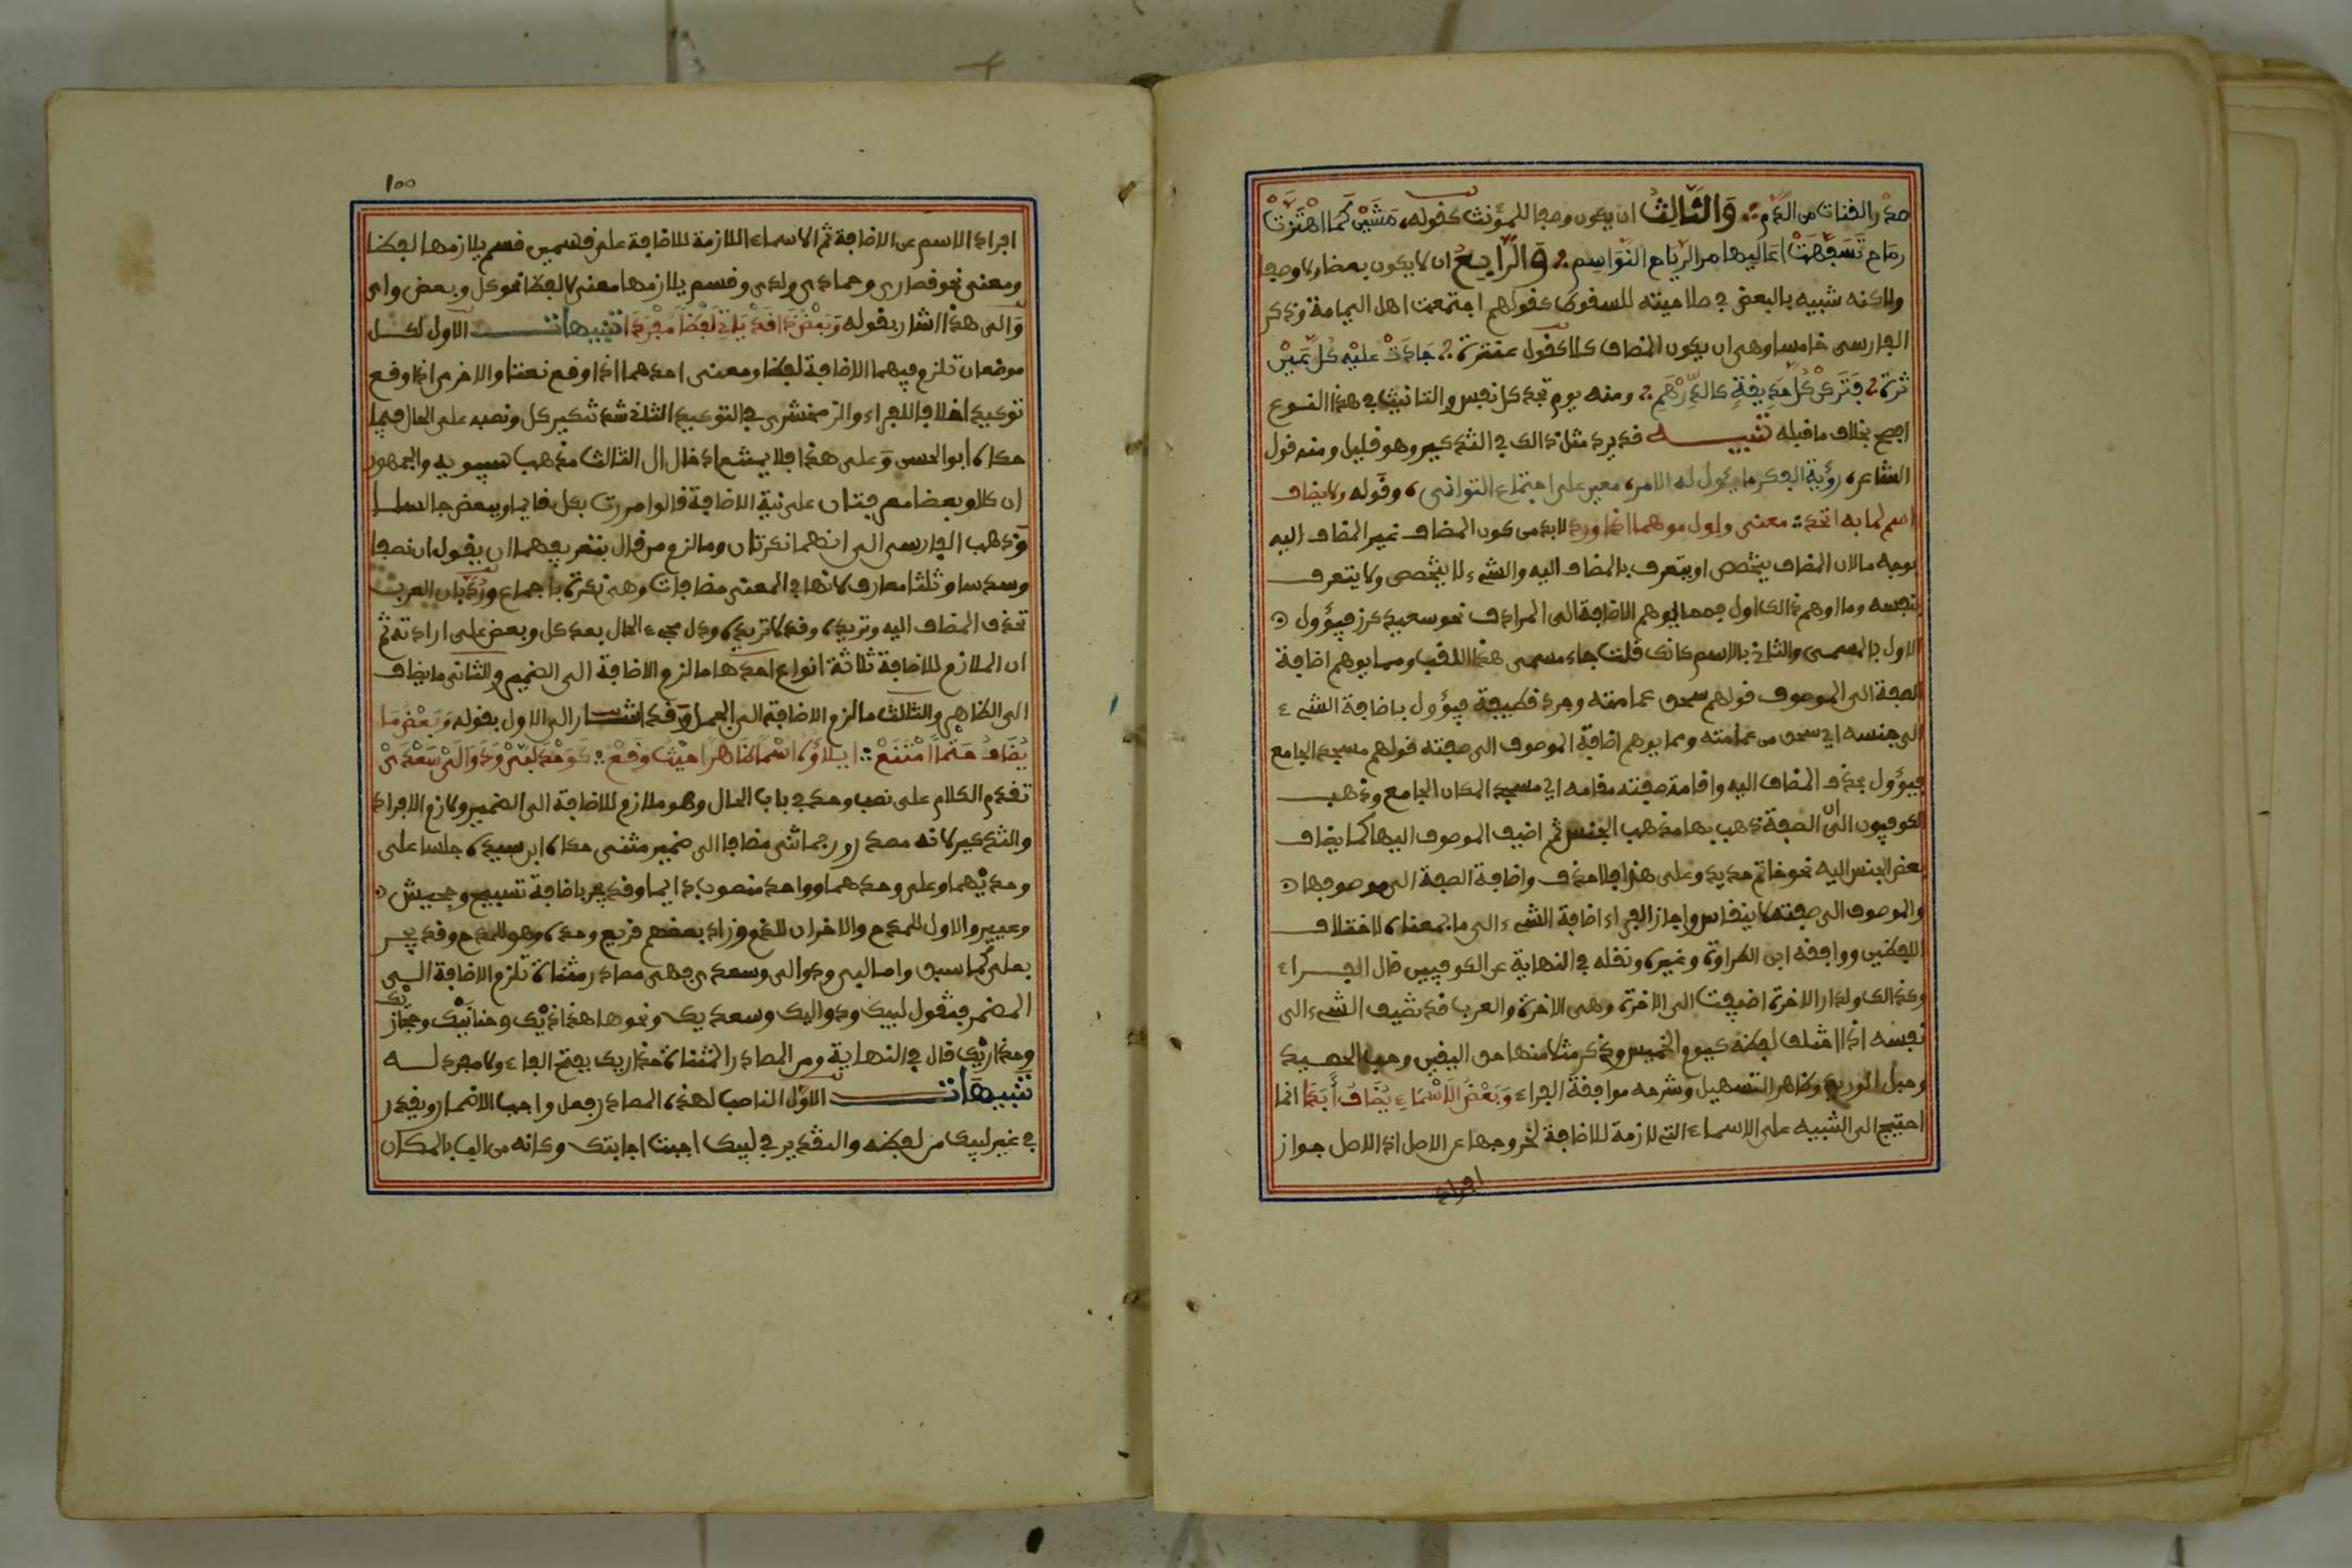 صدر القناة من الدم ؞ وَالثَّالِثُ ان يكون وصفا للمؤنث كقوله، مَشَيْنَ كَمَا اهْتَزَّتْ
رماح تَسَفَّهَتْ اَعَاليها مر الرياح النواسِمِ ؞ وَالرَّابِعُ ان لا يكون بعضا ولا وصفا
ولاكنه شبيه بالبعض في صلاحيته للسقوط كقولهم اجتمعت اهل اليمامة وذكر
الفارسي خامسا وهي ان يكون المضاف كلا كقول عنترة ؞ جَادَتْ عليْهِ كُلُّ عَيْنٍ
ثرة ؞ فَتَرَكْنَ كُلَّ حَدِيقَةٍ كالدِّرْهَمِ ؞ ومنه يوم تجد كل نفس والتانيث في هذا النوع
افصح بخلاف ما قبله تنبيه قد يرد مثل ذالك في التذكير وهو قليل ومنه قول
الشاعر، رؤية الفكر ما يئول له الامر، معين على اجتناب التوانى، وقوله ولا يضاف
اسم لما به اتحد ؞ معنى واول موهما اذا ورد لابد من كون المضاف غير المضاف اليه
بوجه ما لان المضاف يتخصص او يتعرف بالمضاف اليه والشيء لا يتخصص ولا يتعرف
بنفسه وما اوهم ذالك اول فمما يوهم الاضافة الى المرادف نحو سعيد كرز فيؤول
الاول بالمسمى والثاني بالاسم كانك قلت جاء مسمى هذا اللقب ومما يوهم اضافة
الصفة الى الموصوف قولهم سحق عمامته وجرد قطيفة فيؤول باضافة الشيء
الى جنسه اي سحق من عمامته ومما يوهم اضافة الموصوف الى صفته قولهم مسجد الجامع
فيؤول بحذف المضاف اليه واقامة صفته مقامه اي مسجد المكان الجامع وذهب
الكوفيون الى ان الصفة ذهب بها مذهب الجنس ثم اضيف الموصوف اليها كما يضاف
بعض الجنس اليه نحو خاتم حديد وعلى هذا فلا حذف واضافة الصفة الى موصوفها
والموصوف الى صفته لا ينقاس واجاز الفراء اضافة الشيء الى ما بمعناه لاختلاف
اللفظين ووافقه ابن الطراوة وغيره ونقله في النهاية عن الكوفيين قال الفراء
وكذالك ولدار الاخرة اضيفت الى الاخرة وهى الاخرة والعرب قد تضيف الشيء الى
نفسه اذا اختلف لفظه كيوم الخميس وذكر مثلا منها حق اليقين وحب الحصيد
وحبل الوريد وظاهر التسهيل وشرحه موافقة الفراء وَبَعْضُ الَاسْمَاءِ يُضَافُ أَبَدَا انما
احتيج الى التنبيه على الاسماء التي لازمة للاضافة لخروجها عن الاصل اذ الاصل جواز
افراد
100
افراد الاسم عن الاضافة ثم الاسماء اللازمة للاضافة على قسمين قسم يلازمها لفظا
ومعنى نحو قصارى وحمادى ولدى وقسم يلازمها معنى لا لفظا نحو كل وبعض واى
والى هذا اشار بقوله وَبَعْضُ ذَا قَدْ يَاتِ لَفْظاً مُفْرَدَا تنبيهات الاول لكل
موضعان تلزم فيهما الاضافة لفظا ومعنى احدهما اذا وقع نعتا والاخر اذا وقع
توكيدا خلافا للفراء والزمخشرى في التوكيد الثاني شذ تنكير كل ونصبه على الحال فيما
حكاه ابو الحسن وعلى هذا فلا يمتنع ادخال ال الثالث مذهب سيبويه والجمهور
ان كلا وبعضا معرفتان على نية الاضافة قالوا مررت بكل قايما وببعض جالسا
وذهب الفارسي الى انهما نكرتان والزم من قال بتعريفهما ان يقول ان نصفا
وسدسا وثلثا معارف لانها في المعنى مضافات وهى نكرة باجماع ورُدّ بان العرب
تحذف المضاف اليه وتريده وقد لا تريده ودل مجيء الحال بعد كل وبعض على ارادته ثم
ان الملازم للاضافة ثلاثة انواع احدها ما لزم الاضافة الى الضمير والثانى ما يضاف
الى الظاهر والثالث ما لزم الاضافة الى الجمل وقد اشار الى الاول بقوله وَبَعْضُ مَا
يُضَافُ حَتْماً امْتَنَعْ ؞ ايلاؤُه اسْماً ظَاهِراً حَيْثُ وَقَعْ ؞ كَوَحْدَ لَبَّىْ وَدَوَالَىْ سَعْدَىْ
تقدم الكلام على نصب وحد في باب الحال وهو ملازم للاضافة الى الضمير ولازم الافراد
والتذكير لانه مصدر وربما ثنى مضافا الى ضمير مثنى حكاه ابن سيده جلسا على
وحديْهما وعلى وحدهما وواحد منصوب دايما وقد يجر باضافة نسيج وجحيش
وعيير والاول للمدح والاخران للذم وزاد بعضهم قريع وحده وهو للمدح وقد يجر
بعلى كما سبق واما لبى ودوالى وسعدى فهى مصادر مثناة تلزم الاضافة الى
المضمر فتقول لبيك ودواليك وسعديك ونحوها هذاذيْك وحنانَيْك وحجازيك
وحذاريْك قال في النهاية ومن المصادر المثناة حذاريك بفتح الفاء ولا مفرد له
تنبيهَات الاوّل الناصب لهذه المصادر فعل واجب الاضمار ويقدر
في غير لبيك من لفظه والتقدير في لبيك اجبت اجابتك وكانه من الب بالمكان